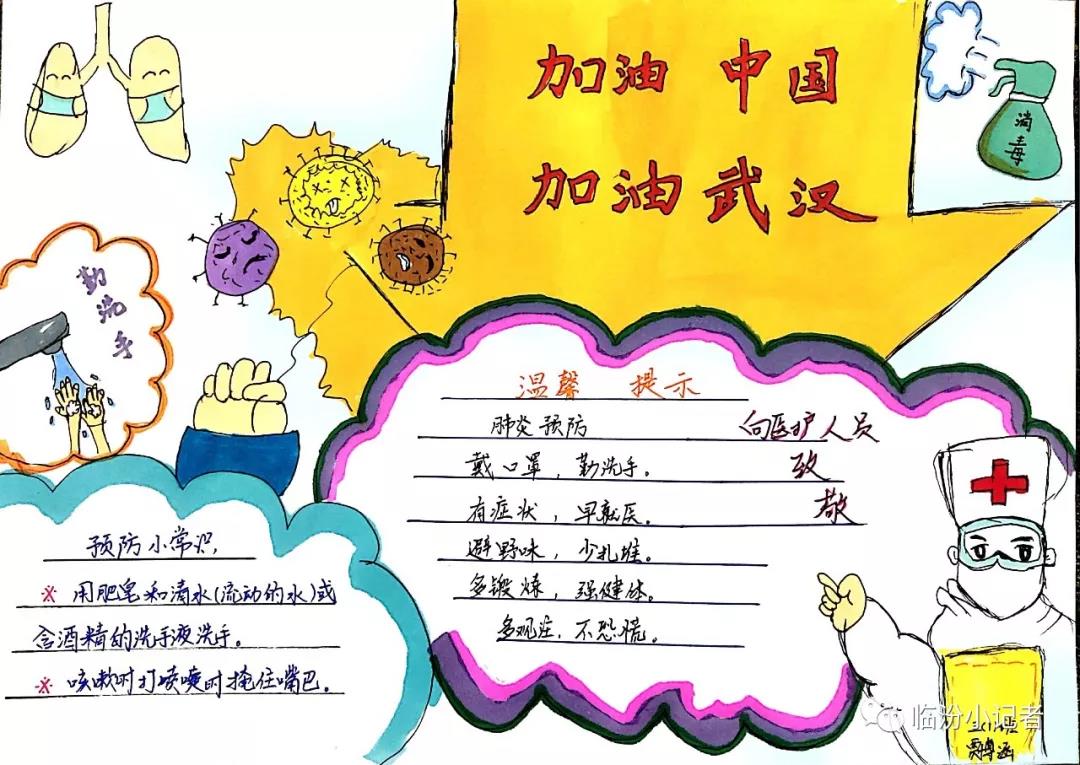 加油 中国
加油武汉
消毒
勤洗手
温馨 提示
肺炎预防
戴口罩，勤洗手。
有症状，早就医。
避野味，少扎堆。
多锻炼，强健体。
多观注，不恐慌。
向医护人员
致
敬
预防小常识
※ 用肥皂和清水(流动的水)或
含酒精的洗手液洗手。
※ 咳嗽时打喷嚏时掩住嘴巴。
临汾小记者